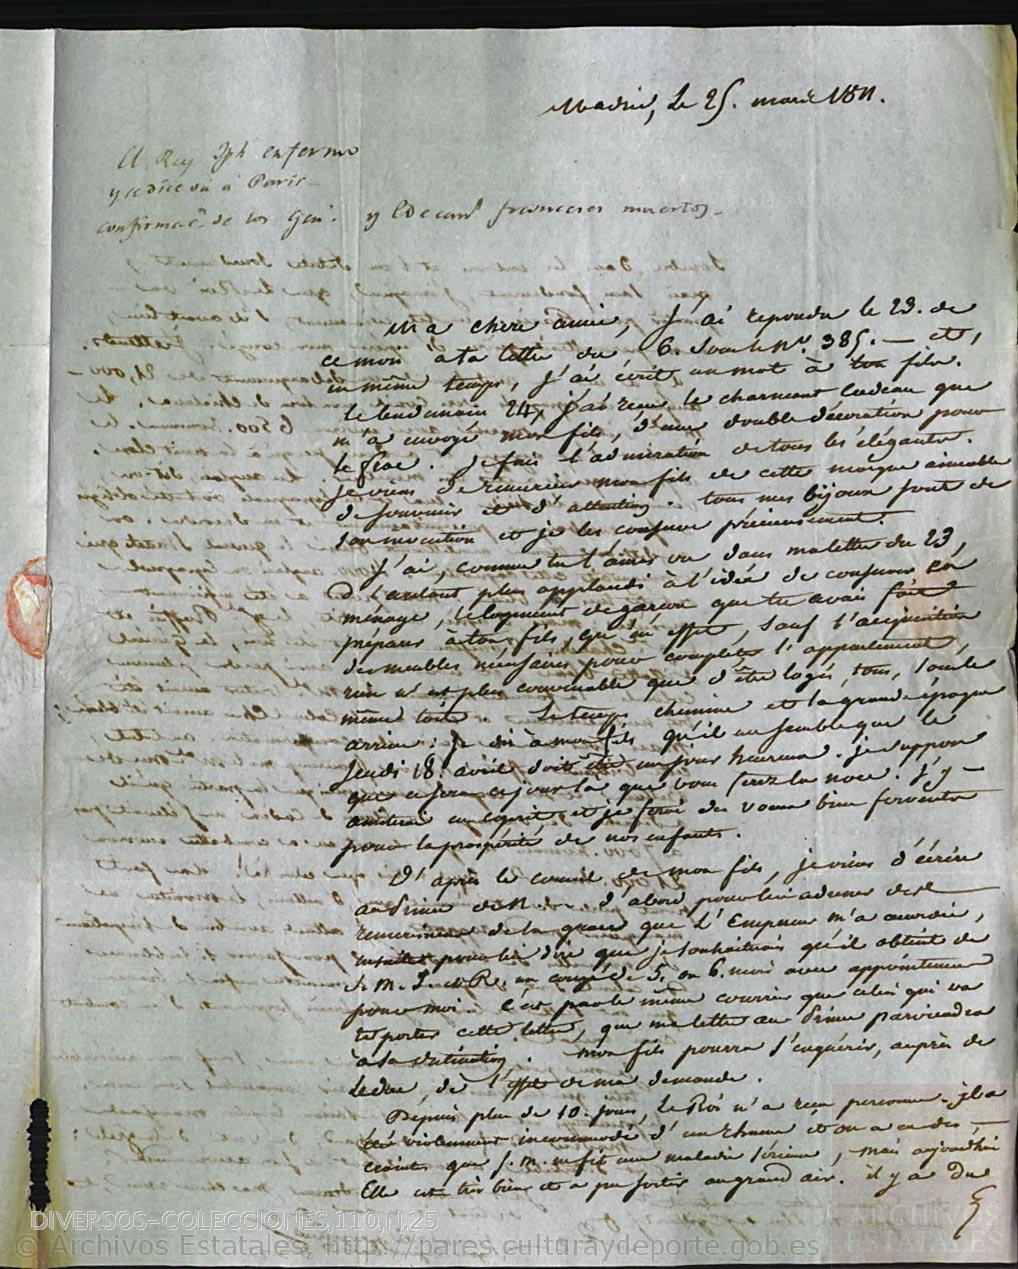 Madrid, le 25. mars 1811.
El Rey Jph enfermo
y se dice va à Paris
confirmac.n de los Gen.s y Edecan.s franceses muertos
Ma chere amie, J'ai repondu le 23. de
ce mois à ta lettre du 6. Sous le N.° 385. — et,
en même temps, j'ai écrit un mot à ton fils.
Le lendemain 24, j'ai reçu le charmant Cadeau que
m'a envoyé mon fils, d'une double décoration pour
le frac. Je fais l'admiration de tous les élégants.
Je viens de remercier mon fils de cette marque aimable
de souvenir et d'attention. tous mes bijoux sont de
son invention et je les conserve précieusement.
J'ai, comme tu l'auras vu dans ma lettre du 23,
d'autant plus applaudi à l'idée de conserver en
ménage, le logement de garçon que tu avais fait
préparer à ton fils, qu'en effet, sauf l'acquisition
des meubles nécessaires pour completter l'appartement,
rien n'est plus convenable que d'être logés, tous, sous le
même toit. Le temps chemine et la grande époque
arrive: Je dis à mon fils qu'il me semble que le
Jeudi 18. avril doit être un jour heureux. je suppose
que ce sera ce jour là que vous ferez la noce. J'y
assisterai en esprit et je ferai des vœux bien fervents
pour la prospérité de nos enfants.
D'après le conseil de mon fils, je viens d'écrire
au Prince de N. — d'abord pour lui adresser des
remercimens de la grace que L'Empereur m'a accordée,
ensuite pour lui dire que je souhaiterais qu'il obtint de
S. M. I. et R. un congé de 5. ou 6. mois avec appointemens
pour moi. C'est par le même courrier que celui qui va
te porter cette lettre, que ma lettre au Prince parviendra
à sa destination. mon fils pourra s'enquérir, auprès de
Leduc, de l'effet de ma demande.
Depuis plus de 10. jours, Le Roi n'a reçu personne. il a
été violemment incommodé d'un rhume et on a eu des
craintes que S. M. ne fit une maladie sérieuse, mais aujourd'hui
Elle est très bien et a pu sortir au grand air. il y a du
DIVERSOS-COLECCIONES,110,N.25
© Archivos Estatales, http://pares.culturaydeporte.gob.es
ARCHIVOS
ESTATALES